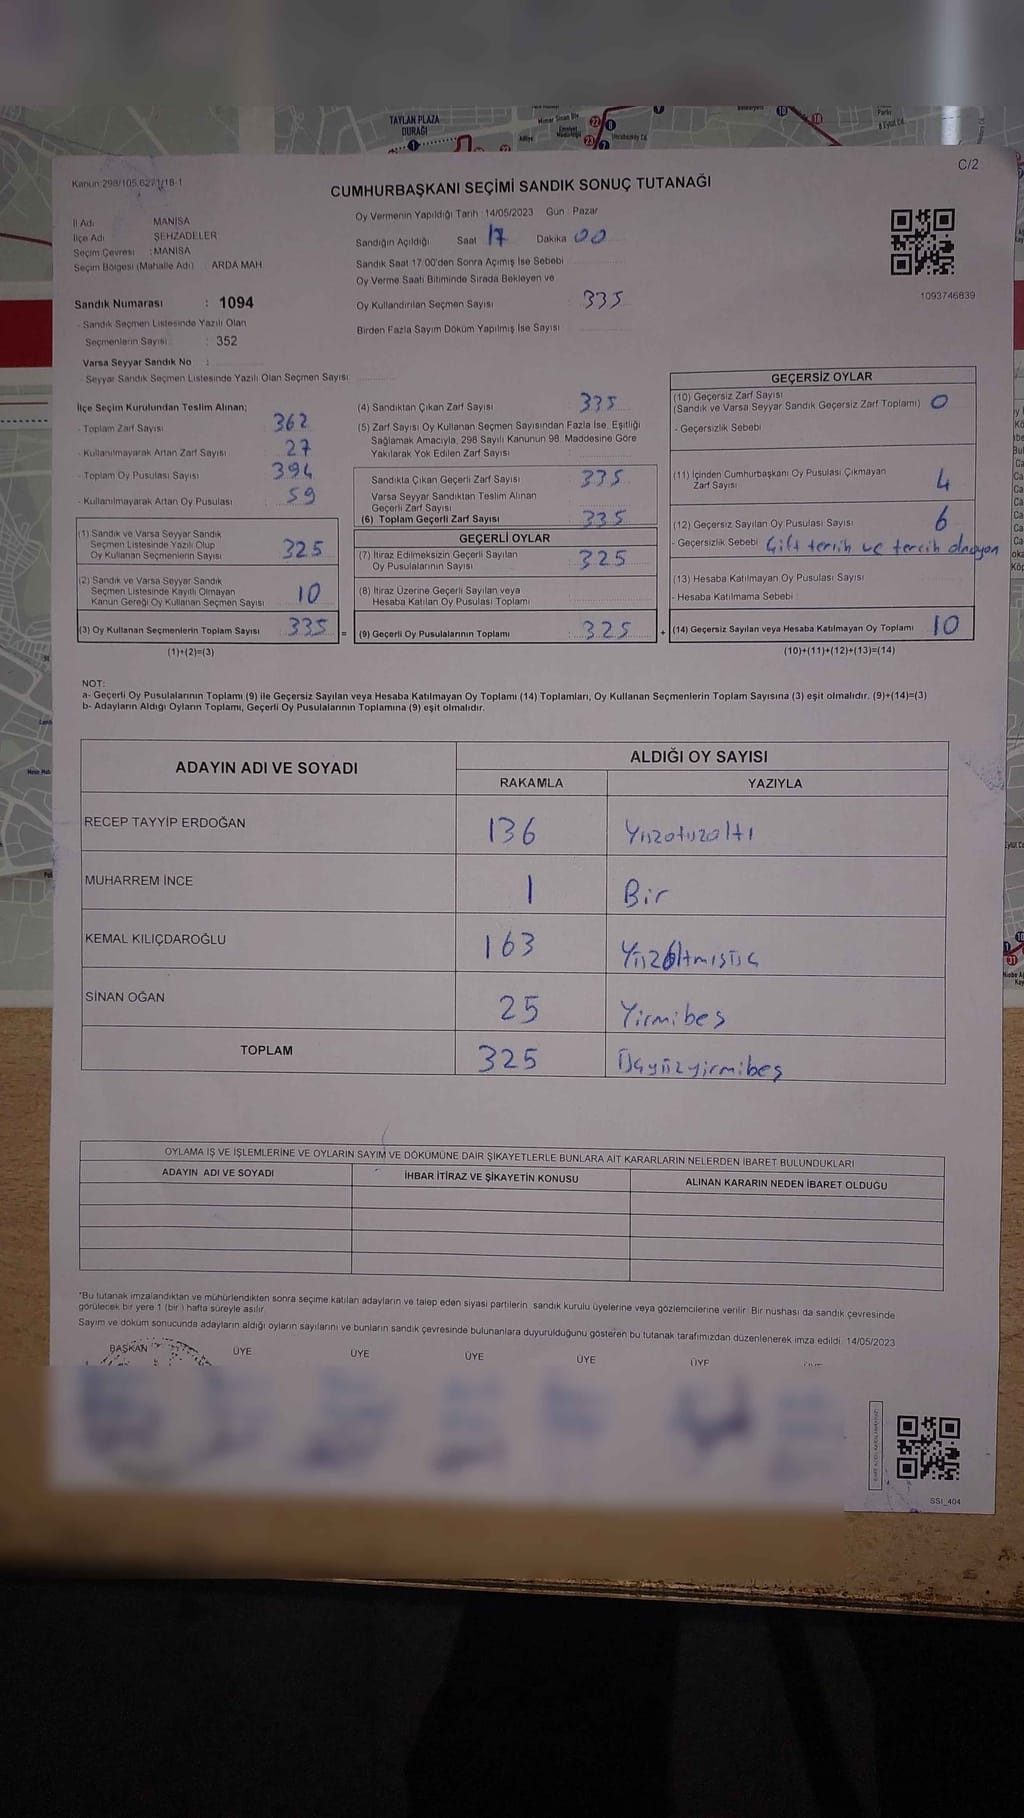 TAYLAN PLAZA
DURAĞI
C/2
Kanun:298/105,6271/18-1
CUMHURBAŞKANI SEÇİMİ SANDIK SONUÇ TUTANAĞI
İl Adı : MANİSA
İlçe Adı : ŞEHZADELER
Seçim Çevresi : MANİSA
Seçim Bölgesi (Mahalle Adı) : ARDA MAH.
Sandık Numarası : 1094
- Sandık Seçmen Listesinde Yazılı Olan
Seçmenlerin Sayısı : 352
Varsa Seyyar Sandık No :
- Seyyar Sandık Seçmen Listesinde Yazılı Olan Seçmen Sayısı:
Oy Vermenin Yapıldığı Tarih : 14/05/2023 Gün : Pazar
Sandığın Açıldığı Saat 17 Dakika 00
Sandık Saat 17.00'den Sonra Açımış İse Sebebi
Oy Verme Saati Bitiminde Sırada Bekleyen ve
Oy Kullandırılan Seçmen Sayısı : 335
Birden Fazla Sayım Döküm Yapılmış İse Sayısı :
1093746839
İlçe Seçim Kurulundan Teslim Alınan;
- Toplam Zarf Sayısı : 362
- Kullanılmayarak Artan Zarf Sayısı : 27
- Toplam Oy Pusulası Sayısı : 394
- Kullanılmayarak Artan Oy Pusulası : 59
(1) Sandık ve Varsa Seyyar Sandık
Seçmen Listesinde Yazılı Olup
Oy Kullanan Seçmenlerin Sayısı : 325
(2) Sandık ve Varsa Seyyar Sandık
Seçmen Listesinde Kayıtlı Olmayan
Kanun Gereği Oy Kullanan Seçmen Sayısı : 10
(3) Oy Kullanan Seçmenlerin Toplam Sayısı : 335 =
(1)+(2)=(3)
(4) Sandıktan Çıkan Zarf Sayısı : 335
(5) Zarf Sayısı Oy Kullanan Seçmen Sayısından Fazla İse, Eşitliği
Sağlamak Amacıyla, 298 Sayılı Kanunun 98. Maddesine Göre
Yakılarak Yok Edilen Zarf Sayısı :
Sandıkta Çıkan Geçerli Zarf Sayısı : 335
Varsa Seyyar Sandıktan Teslim Alınan
Geçerli Zarf Sayısı :
(6) Toplam Geçerli Zarf Sayısı : 335
GEÇERLİ OYLAR
(7) İtiraz Edilmeksizin Geçerli Sayılan
Oy Pusulalarının Sayısı : 325
(8) İtiraz Üzerine Geçerli Sayılan veya
Hesaba Katılan Oy Pusulası Toplamı :
(9) Geçerli Oy Pusulalarının Toplamı : 325 +
GEÇERSİZ OYLAR
(10) Geçersiz Zarf Sayısı
(Sandık ve Varsa Seyyar Sandık Geçersiz Zarf Toplamı) : 0
- Geçersizlik Sebebi :
(11) İçinden Cumhurbaşkanı Oy Pusulası Çıkmayan
Zarf Sayısı : 4
(12) Geçersiz Sayılan Oy Pusulası Sayısı : 6
- Geçersizlik Sebebi : Çift tercih ve tercih olmayan
(13) Hesaba Katılmayan Oy Pusulası Sayısı :
- Hesaba Katılmama Sebebi :
(14) Geçersiz Sayılan veya Hesaba Katılmayan Oy Toplamı : 10
(10)+(11)+(12)+(13)=(14)
NOT:
a- Geçerli Oy Pusulalarının Toplamı (9) ile Geçersiz Sayılan veya Hesaba Katılmayan Oy Toplamı (14) Toplamları, Oy Kullanan Seçmenlerin Toplam Sayısına (3) eşit olmalıdır. (9)+(14)=(3)
b- Adayların Aldığı Oyların Toplamı, Geçerli Oy Pusulalarının Toplamına (9) eşit olmalıdır.
ADAYIN ADI VE SOYADI
ALDIĞI OY SAYISI
RAKAMLA YAZIYLA
RECEP TAYYİP ERDOĞAN 136 Yüzotuzaltı
MUHARREM İNCE 1 Bir
KEMAL KILIÇDAROĞLU 163 Yüzaltmışüç
SİNAN OĞAN 25 Yirmibeş
TOPLAM 325 Üçyüzyirmibeş
OYLAMA İŞ VE İŞLEMLERİNE VE OYLARIN SAYIM VE DÖKÜMÜNE DAİR ŞİKAYETLERLE BUNLARA AİT KARARLARIN NELERDEN İBARET BULUNDUKLARI
ADAYIN ADI VE SOYADI İHBAR İTİRAZ VE ŞİKAYETİN KONUSU ALINAN KARARIN NEDEN İBARET OLDUĞU
*Bu tutanak imzalandıktan ve mühürlendikten sonra seçime katılan adayların ve talep eden siyasi partilerin sandık kurulu üyelerine veya gözlemcilerine verilir. Bir nüshası da sandık çevresinde
görülecek bir yere 1 (bir ) hafta süreyle asılır.
Sayım ve döküm sonucunda adayların aldığı oyların sayılarını ve bunların sandık çevresinde bulunanlara duyurulduğunu gösteren bu tutanak tarafımızdan düzenlenerek imza edildi. 14/05/2023
BAŞKAN ÜYE ÜYE ÜYE ÜYE ÜYE
SSI_404